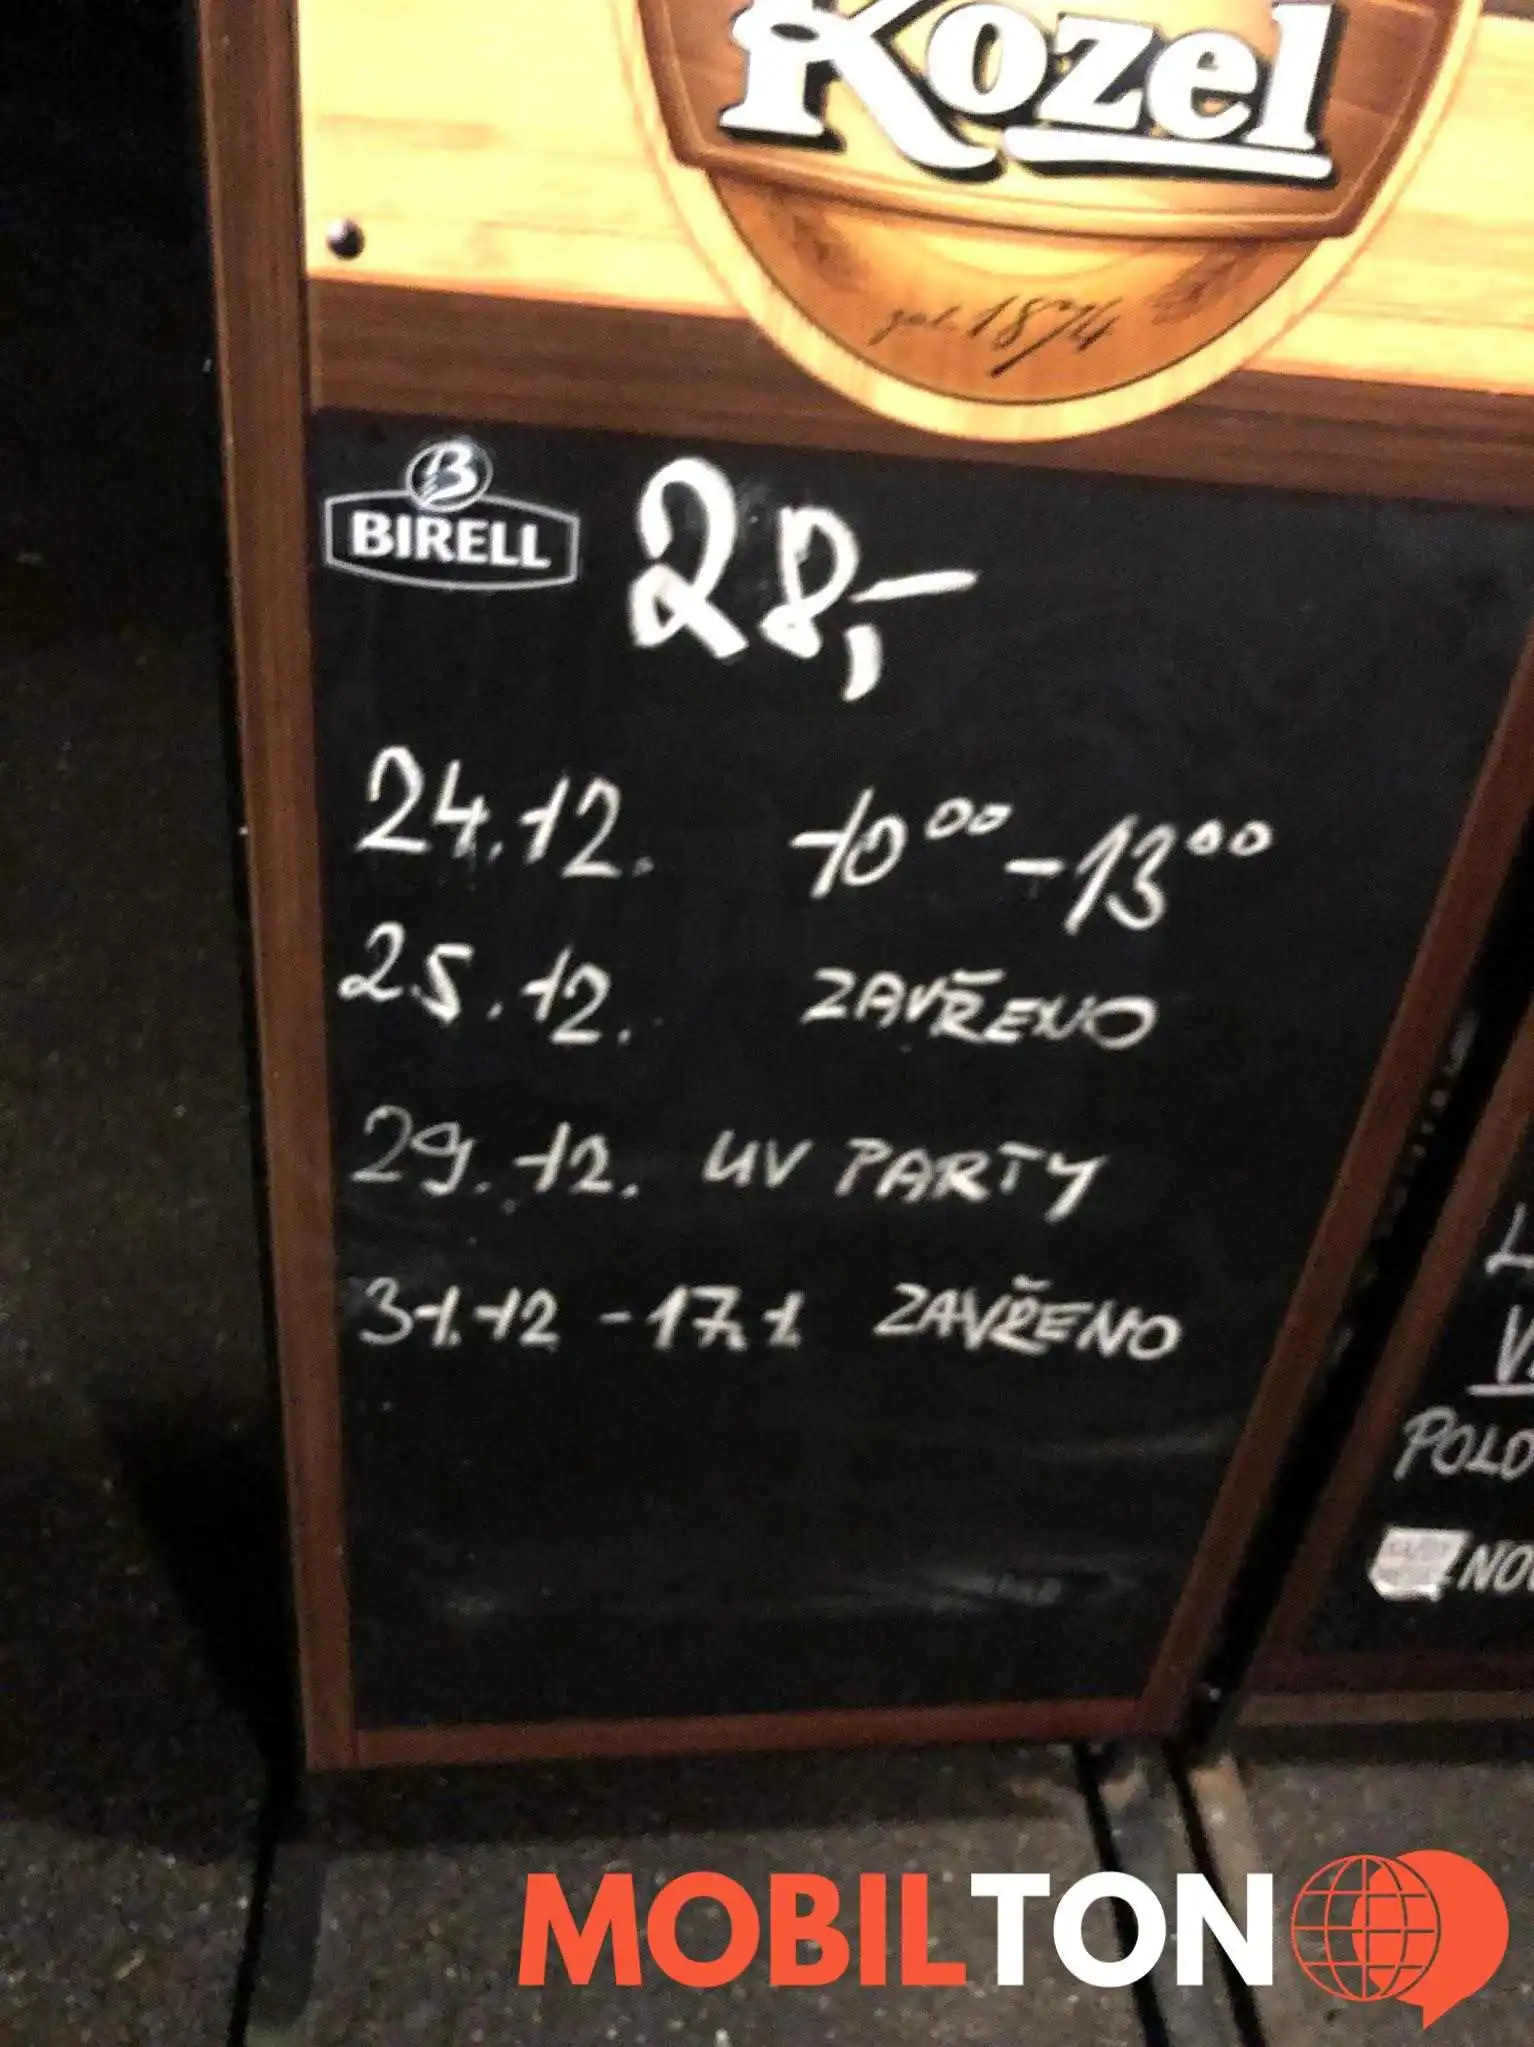 Kozel
zal. 1874
B
BIRELL
28,-
24.12. 10⁰⁰-13⁰⁰
25.12. ZAVŘENO
29.12. UV PARTY
31.12 - 17.1 ZAVŘENO
POLO
NO
MOBILTON